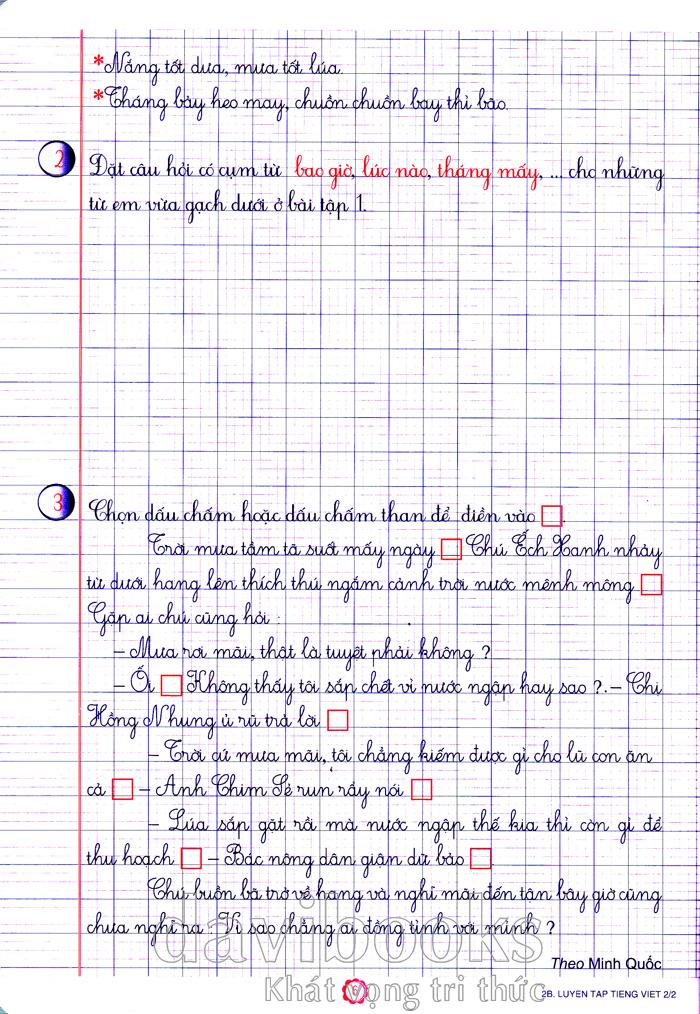 *Nắng tốt dưa, mưa tốt lúa.
*Tháng bảy heo may, chuồn chuồn bay thì bão.
2 Đặt câu hỏi có cụm từ bao giờ, lúc nào, tháng mấy, ... cho những
từ em vừa gạch dưới ở bài tập 1.
3 Chọn dấu chấm hoặc dấu chấm than để điền vào □.
Trời mưa tầm tã suốt mấy ngày □ Chú Ếch Xanh nhảy
từ dưới hang lên thích thú ngắm cảnh trời nước mênh mông □
Gặp ai chú cũng hỏi :
– Mưa rơi mãi, thật là tuyệt phải không ?
– Ối □ Không thấy tôi sắp chết vì nước ngập hay sao ?. – Chị
Hồng Nhung ủ rũ trả lời □
– Trời cứ mưa mãi, tôi chẳng kiếm được gì cho lũ con ăn
cả □ – Anh Chim Sẻ run rẩy nói □
– Lúa sắp gặt rồi mà nước ngập thế kia thì còn gì để
thu hoạch □ – Bác nông dân giận dữ bảo □
Chú buồn bã trở về hang và nghĩ mãi đến tận bây giờ cũng
chưa nghĩ ra : Vì sao chẳng ai đồng tình với mình ?
Theo Minh Quốc
davibooks
Khát vọng tri thức
6
2B. LUYEN TAP TIENG VIET 2/2